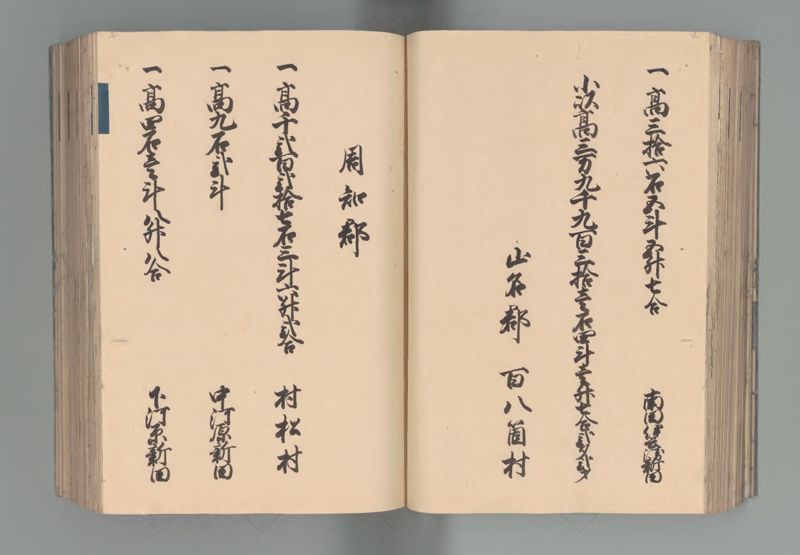 一 高三拾六石五斗五升七合 南田伊兵衛新田
小以高三万九千九百三拾壱石四斗壱升七合余弐夕弐才
山名郡 百八箇村
周知郡
一 高千弐百弐拾七石三斗六升弐合 村松村
一 高九石弐斗 中河原新田
一 高四石壱斗八升八合 下河原新田